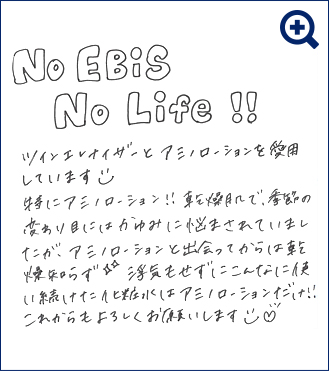 No EBiS
No Life !!
ツインエレナイザーとアミノローションを愛用
しています
特にアミノローション!! 乾燥肌で、季節の
変わり目にはかゆみに悩まされていまし
たが、アミノローションと出会ってからは乾
燥知らず 浮気もせずにこんなに使
い続けた化粧水はアミノローションだけ!!
これからもよろしくお願いします